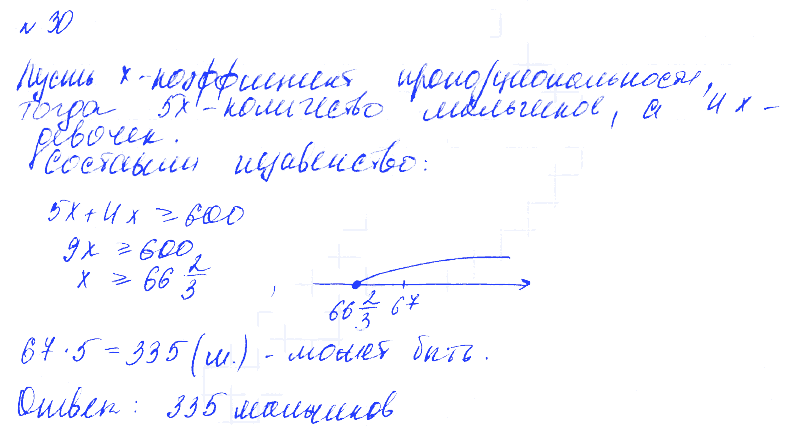 № 30
Пусть x - коэффициент пропорциональности,
тогда 5x - количество мальчиков, а 4x -
девочек.
Составим неравенство:
5x + 4x ≥ 600
9x ≥ 600
x ≥ 66 2/3 ,
66 2/3 67
67 · 5 = 335 (м.) - может быть.
Ответ: 335 мальчиков